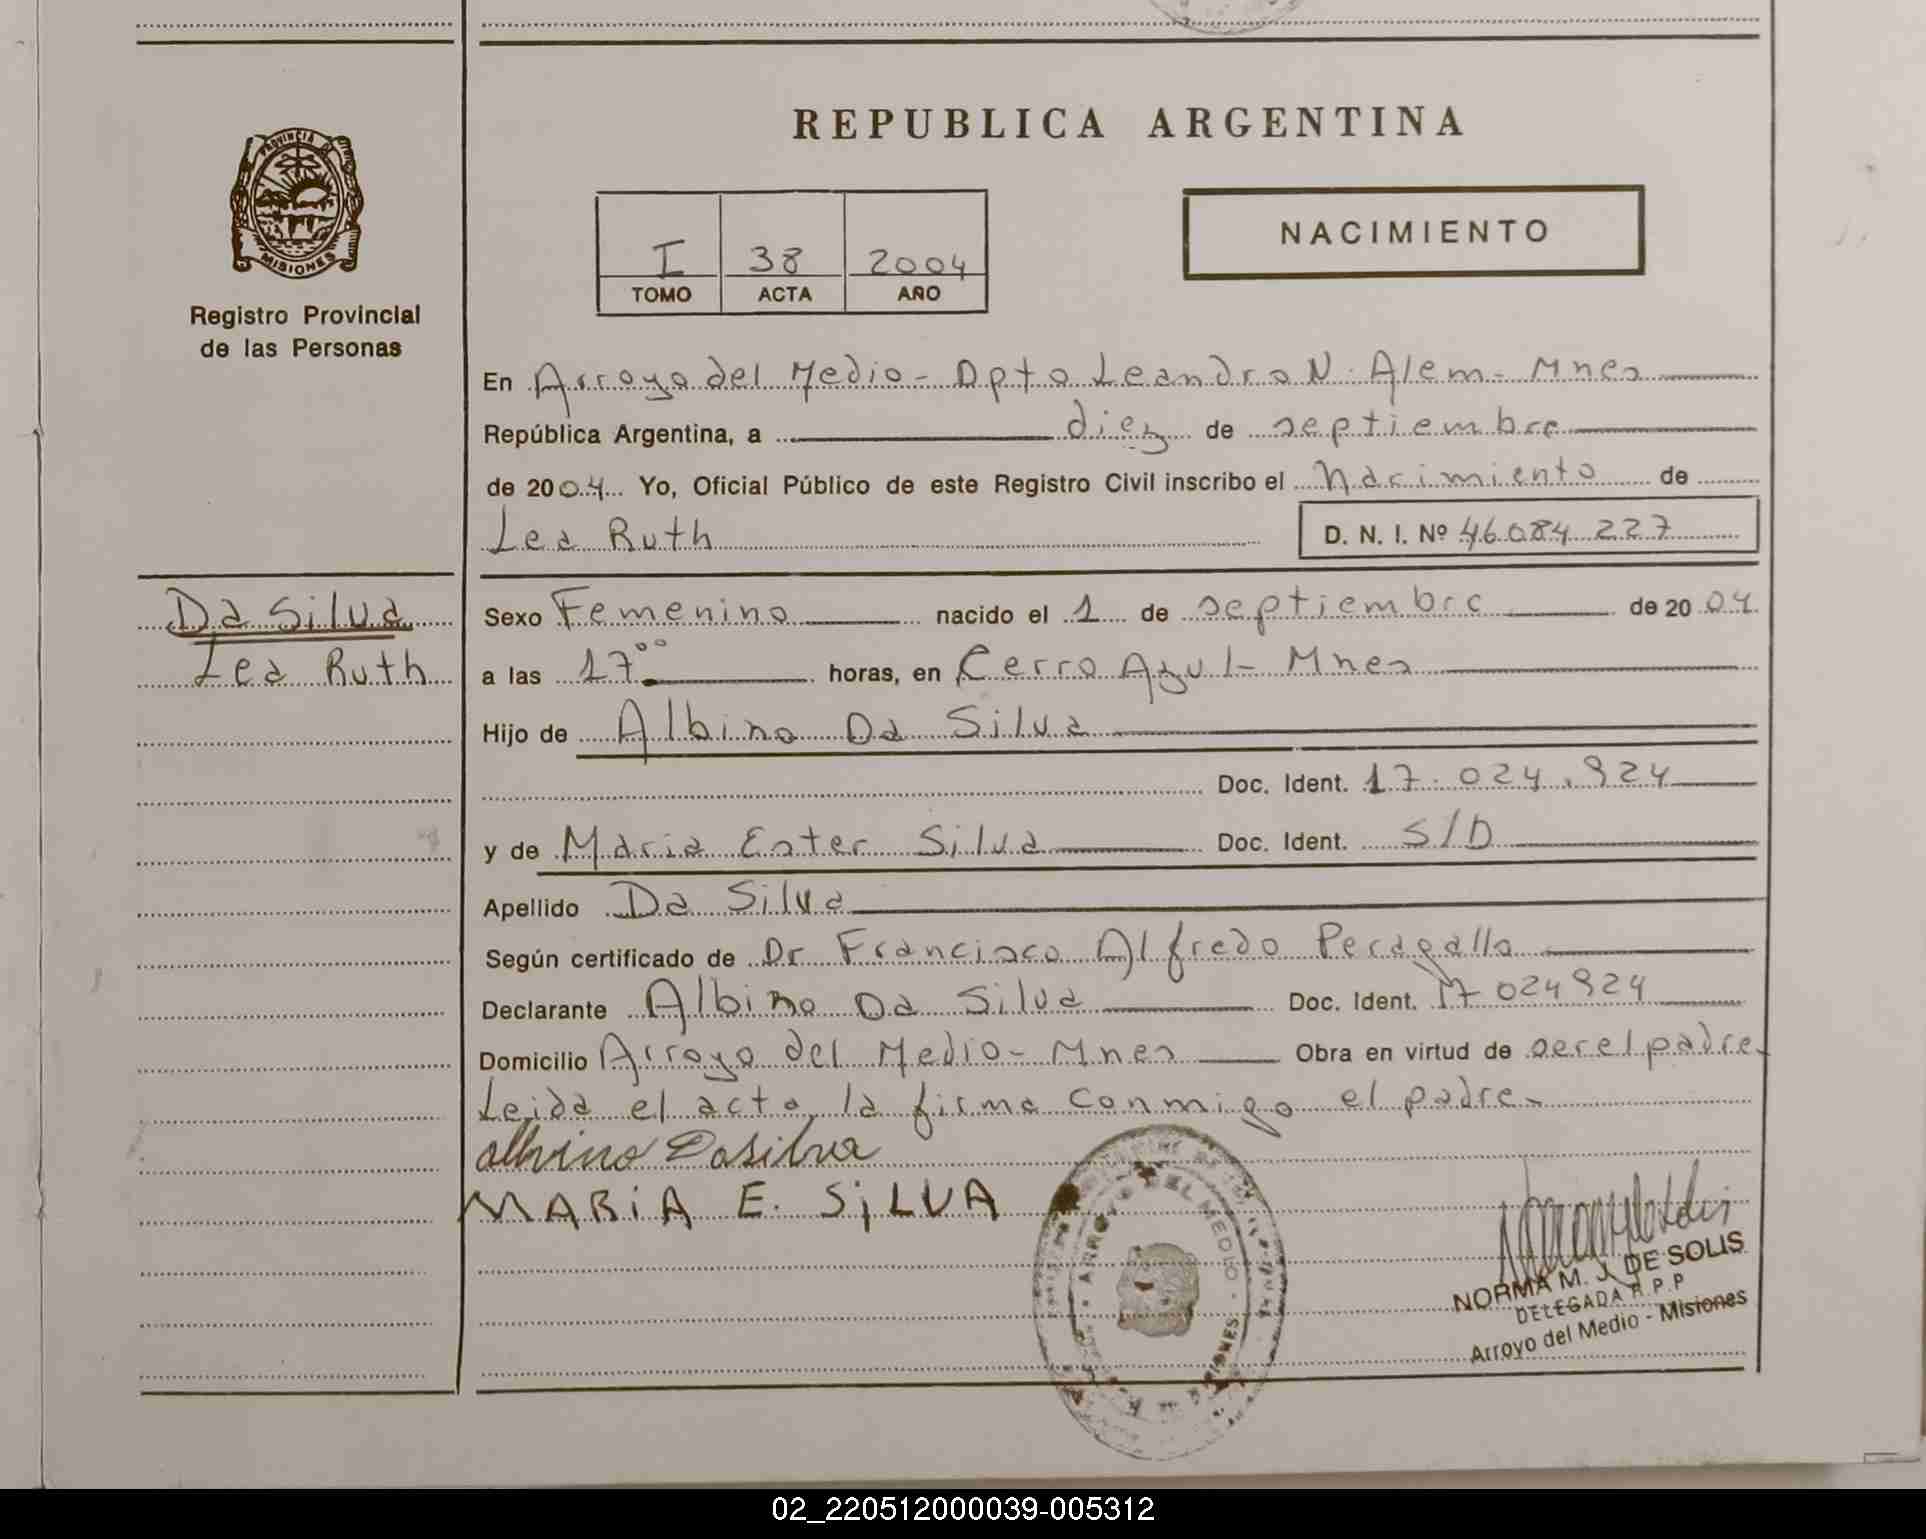 REPUBLICA ARGENTINA
PROVINCIA DE
MISIONES
Registro Provincial
de las Personas
I 38 2004
TOMO ACTA AÑO
NACIMIENTO
En Arroyo del Medio - Dpto Leandro N. Alem - Mnes
República Argentina, a diez de septiembre
de 2004 Yo, Oficial Público de este Registro Civil inscribo el Nacimiento de
Lea Ruth D. N. I. Nº 46084227
Da Silva
Lea Ruth
Sexo Femenino nacido el 1 de septiembre de 2004
a las 17⁰⁰ horas, en Cerro Azul - Mnes
Hijo de Albino Da Silva
Doc. Ident. 17.024.924
y de Maria Ester Silva Doc. Ident. S/D
Apellido Da Silva
Según certificado de Dr Francisco Alfredo Peragallo
Declarante Albino Da Silva Doc. Ident. 17 024924
Domicilio Arroyo del Medio - Mnes Obra en virtud de ser el padre
Leida el acta, la firma conmigo el padre
albino Dasilva
MARiA E. SiLVA
ARROYO DEL MEDIO
NORMA M. J. DE SOLIS
DELEGADA R.P.P
Arroyo del Medio - Misiones
02_220512000039-005312